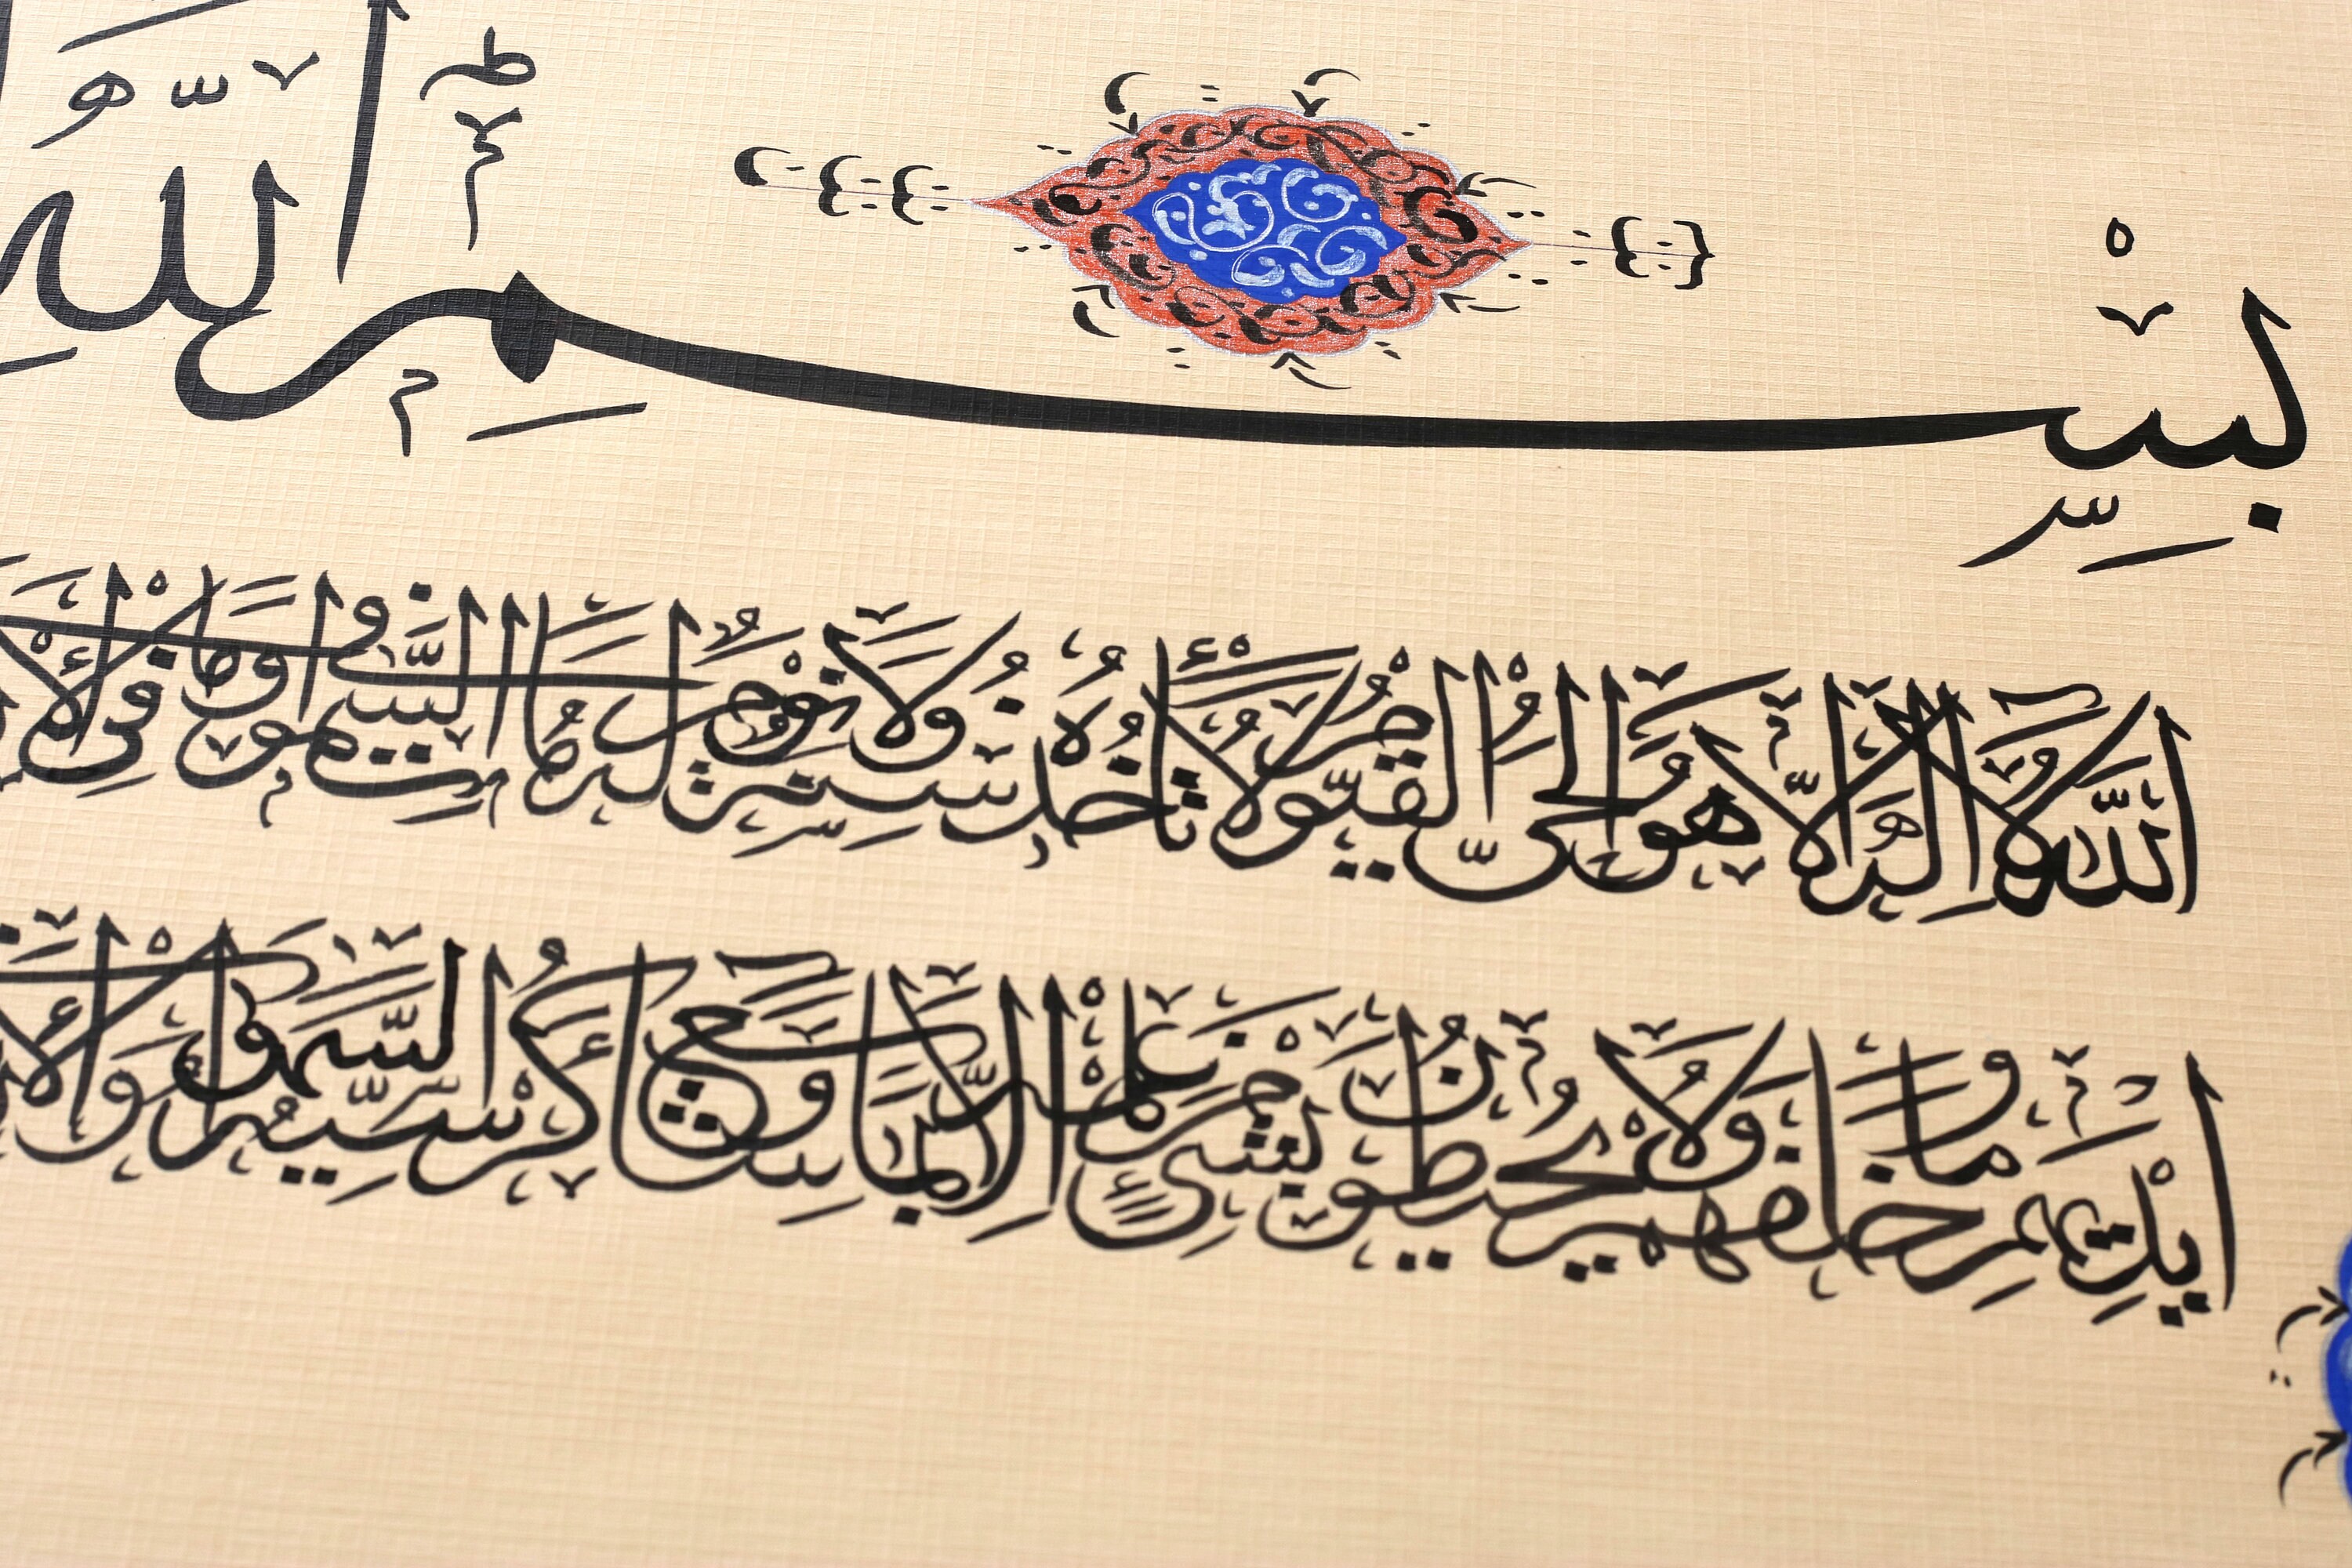 بِسْمِ اللّٰهِ
اَللّٰهُ لَا اِلٰهَ اِلَّا هُوَ الْحَيُّ الْقَيُّومُ لَا تَأْخُذُهُ سِنَةٌ وَلَا نَوْمٌ لَهُ مَا فِي السَّمٰوَاتِ وَمَا فِي الْاَرْ
اَيْدِيهِمْ وَمَا خَلْفَهُمْ وَلَا يُحِيطُونَ بِشَيْءٍ مِنْ عِلْمِهِ اِلَّا بِمَا شَاءَ وَسِعَ كُرْسِيُّهُ السَّمٰوَاتِ وَالْاَرْ